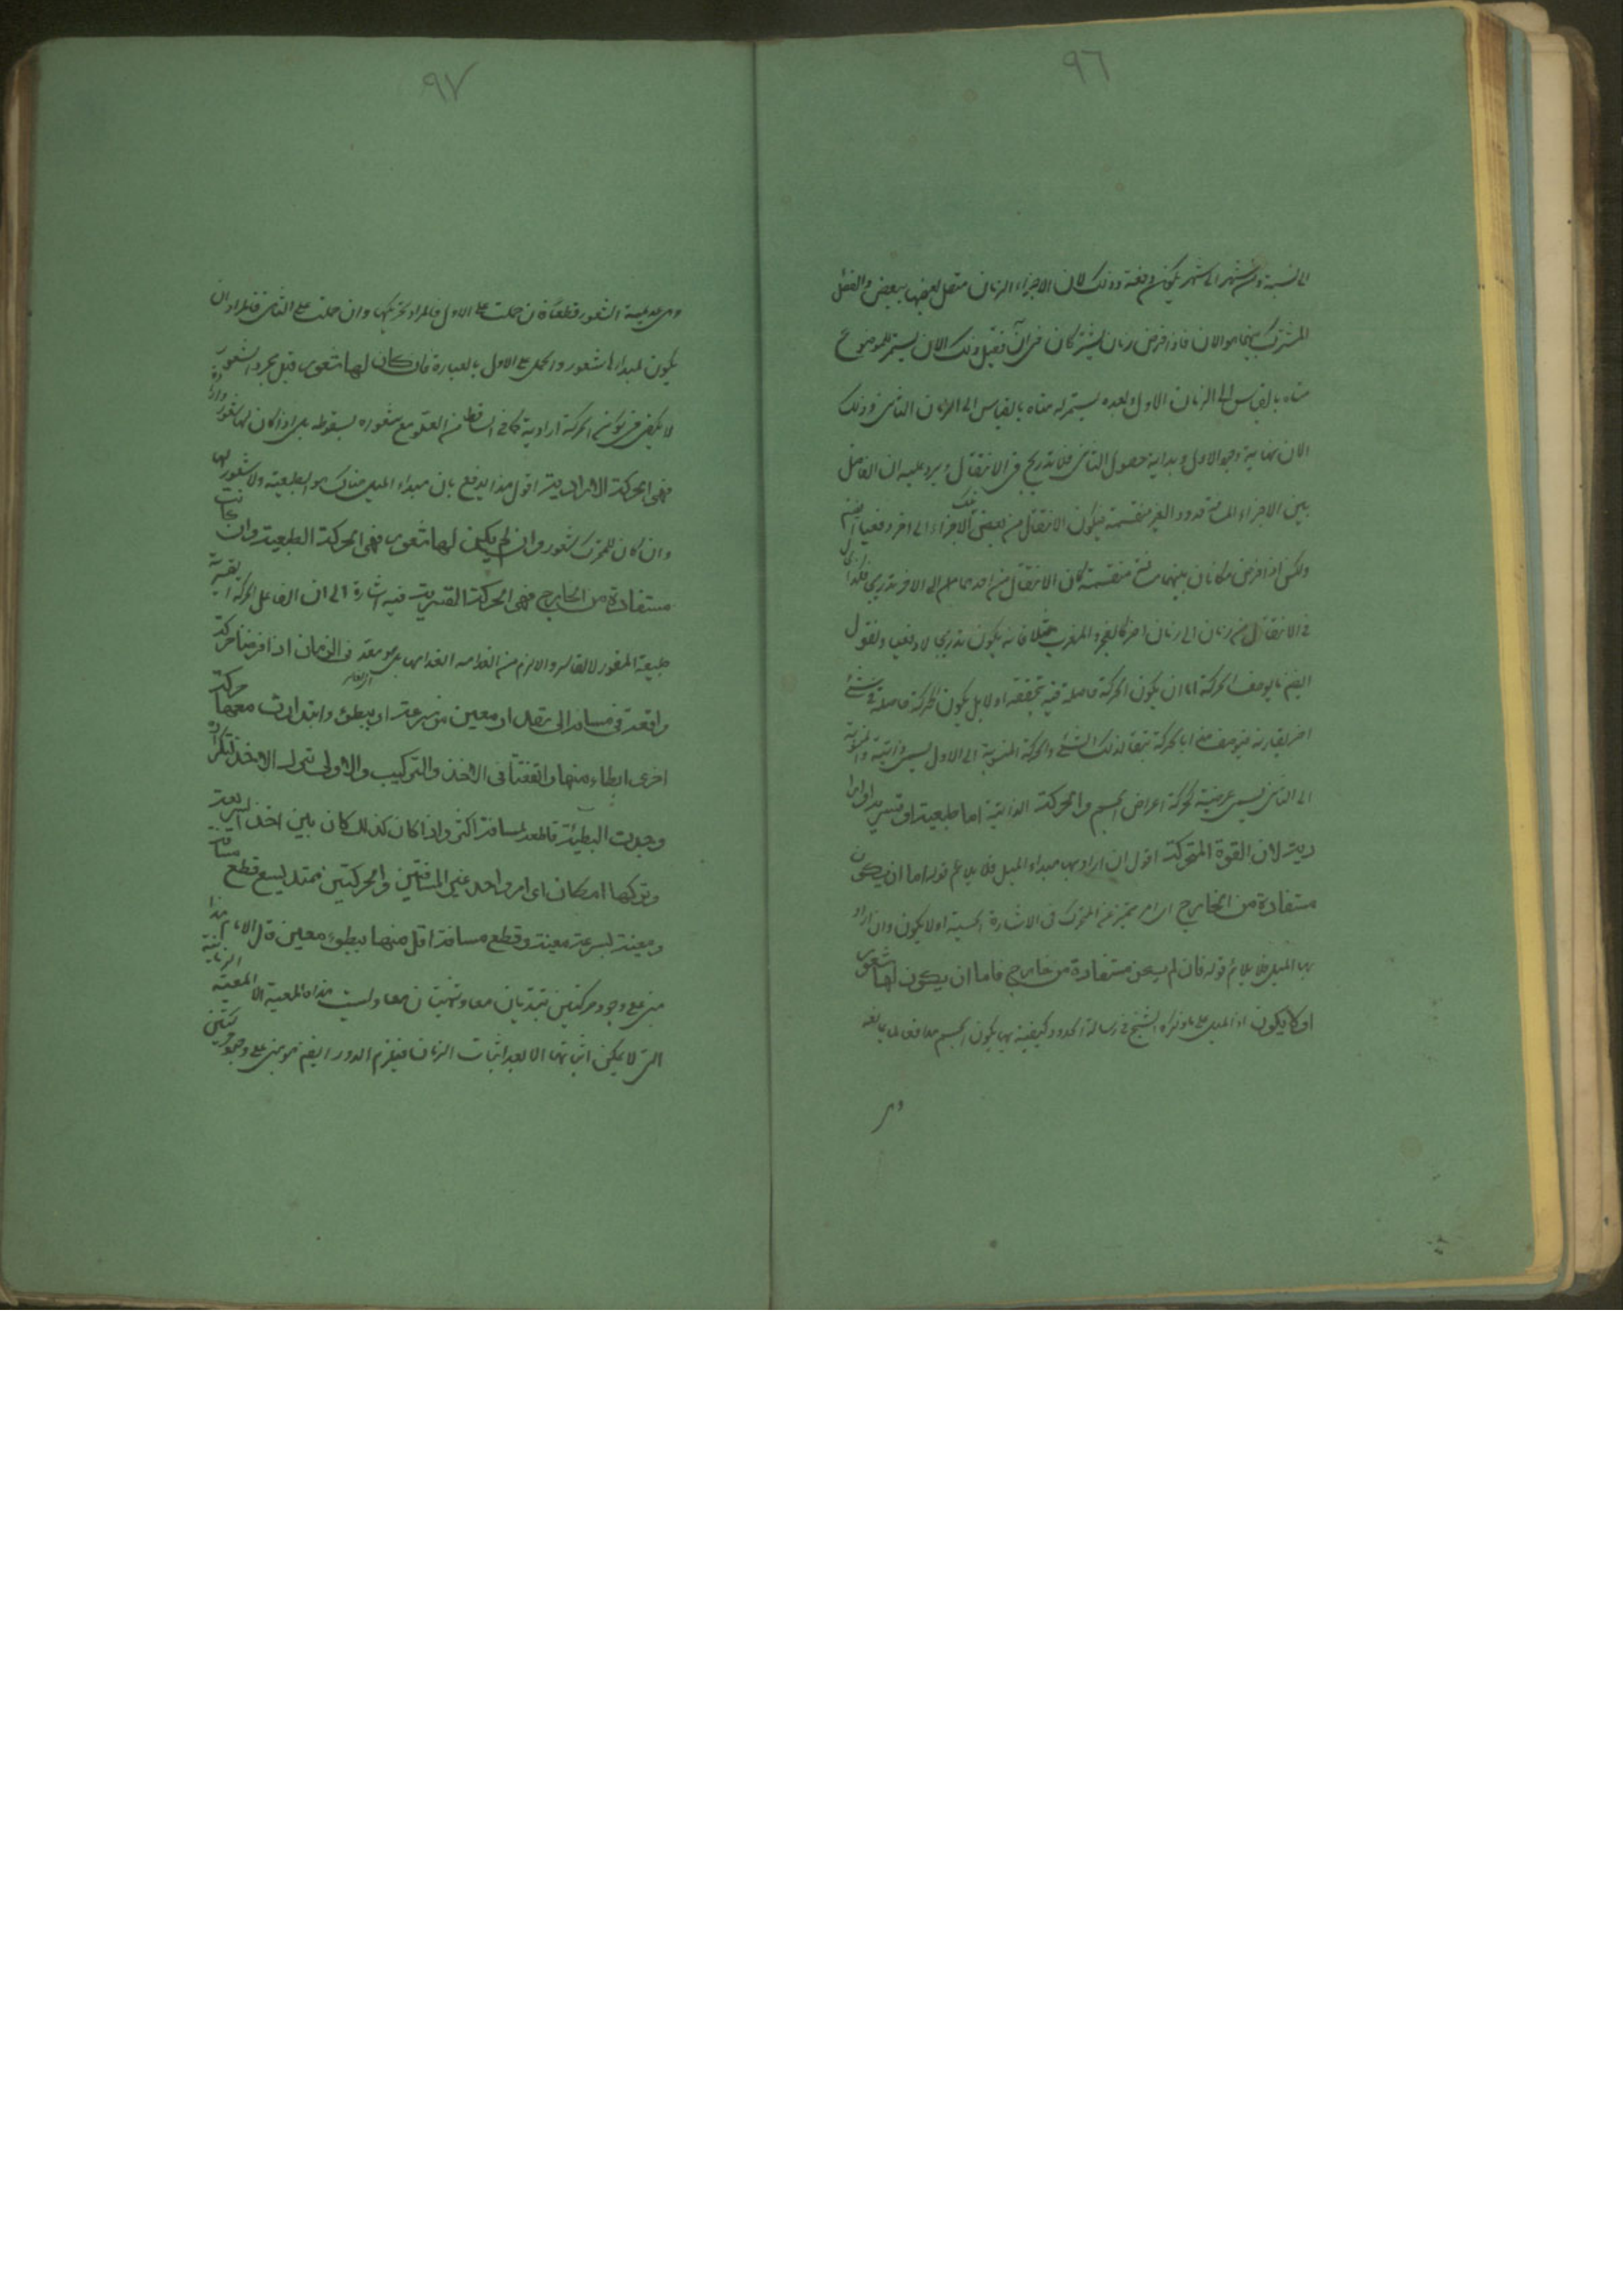 ٩٦
الى سنة ومن شهر الى شهر يكون دفعة وذلك لان الاجزاء الزمان متصل بعضها ببعض والفصل
المشترك بينهما هو الان فاذا فرض زمان يشتركان فى آن فقبل ذلك الان يستمر للموضوع
متاه بالقياس الى الزمان الاول وبعده يستمر له متاه بالقياس الى الزمان الثانى وذلك
الان نهاية وجود الاول وبداية حصول الثانى فلا تدريج فى الانتقال ويرد عليه ان الفاصل
بين الاجزاء المسافة حدود الغير منقسمة فيكون الانتقال من بعض تلك الاجزاء الى اخر دفعيا ايضا
ولكن اذا فرض مكانان بينهما مسافة منقسمة كان الانتقال من احدهما الى الاخر تدريجى فكذا الحال
فى الانتقال من زمان الى زمان اخر كالفجر والمغرب مثلا فانه يكون تدريجى لا دفعيا ونقول
ايضا ما يوصف بالحركة اما ان يكون الحركة حاصلة فيه بحقيقة اولا بل يكون الحركة حاصلة فى شئ
اخر يقارنه فيوصف هذا بالحركة تبعا لذلك الشئ والحركة المنسوبة الى الاول تسمى ذاتية والمنسوبة
الى الثانى تسمى عرضية كحركة اعراض الجسم والحركة الذاتية اما طبيعية او قسرية او ارا
دية لان القوة المتحركة اقول ان اراد بها مبداء الميل فلا يلائم قوله اما ان يكون
مستفادة من الخارج اى امر متميز عن المتحرك فى الاشارة الحسية او لا يكون وان اراد
بها الميل فلا يلائم قوله فان لم يكن مستفادة من خارج فاما ان يكون لها شعور
او لا يكون اذ الميل على ما ذكره الشيخ فى رسالة الحدود كيفية بها يكون الجسم مدافعا لما يمانعه
وهى
٩٧
وهى عديمة الشعور قطعا فان حملت على الاول فالمراد تحريكها وان حملت على الثانى فالمراد ان
يكون لمبداءها شعور والحمل على الاول بالعبارة فان كان لها شعور قيل مجرد الشعور
لا يكفى فى كون الحركة ارادية كما فى الساقط من العلو مع شعوره بسقوطه بل اذا كان لها شعور وارادة
فهى الحركة الارادية اقول هذا يدفع بان مبداء الميل هناك هو الطبيعة ولا شعور لها
وان كان للمتحرك شعور وان لم يكن لها شعور فهى الحركة الطبيعية وان كانت
مستفادة من الخارج فهى الحركة القسرية فيه اشارة الى ان الفاعل للحركة القسرية
طبيعة المقسور لا القاسر والا لزم من انعدامه انعدامها بل هو معد فى الزمان اذا فرضنا حركة
واقعة فى مسافة الى مقدار معين من سرعة او ببطئ وابتدات معها حركة
اخرى ابطاء منها واتفقتا فى الاخذ والترك
وجدت البطيئة قاطعة لمسافة اكثر واذا كان كذلك كان بين اخذ السريعة
وتركها امكان اى امر واحد غير المسافتين والحركتين ممتد يسع قطع مسافة
معينة بسرعة معينة وقطع مسافة اقل منها ببطوء معين قال الامام هذا
مبنى على وجود حركتين تبتديان معا وتنتهيان معا وليست هذه المعية الا المعية الزمانية
التى لا يمكن اثباتها الا بعد اثبات الزمان فيلزم الدور ايضا هو مبنى على وجود حركتين